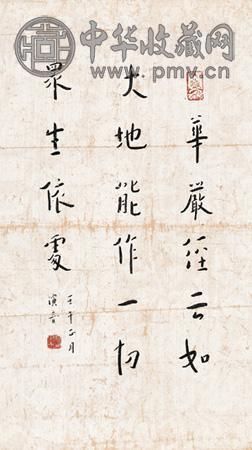 中华收藏网
www.pmv.cn
華嚴經云如
大地能作一切
眾生依處
壬午正月
演音